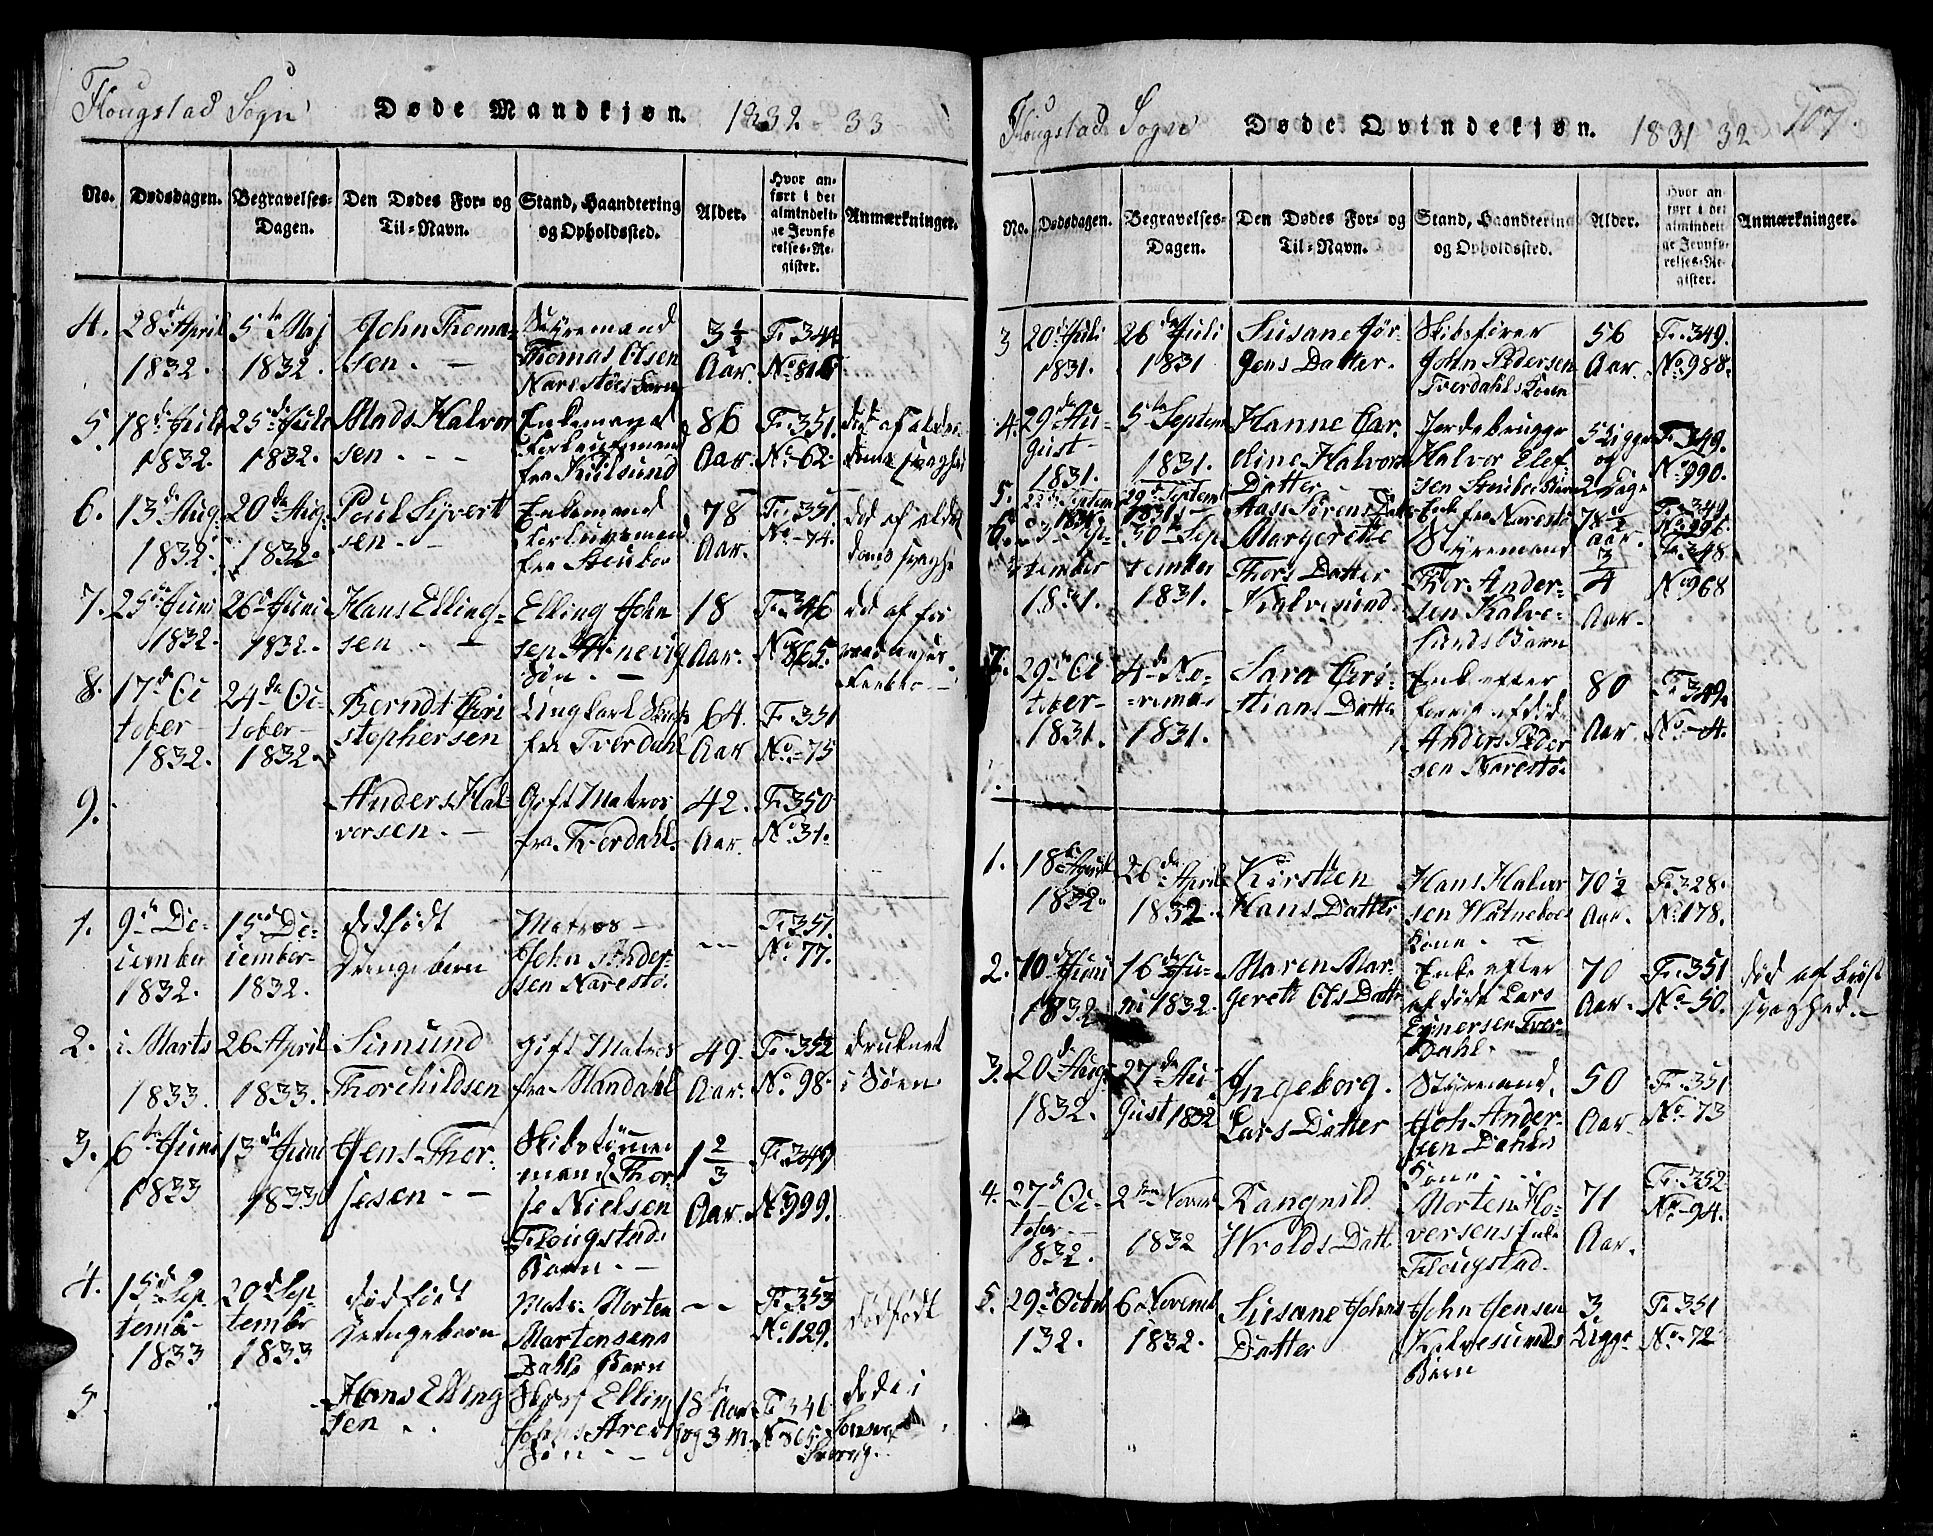 Flougstad Sogn
Døde Mandkjøn. 1832 - 33
No. Dødsdagen. Begravelses-Dagen. Den Dødes For- og Til-Navn. Stand, Haandtering og Opholdssted. Alder. Hvor anført i det almindelige Jevnførelses-Register. Anmærkninger.
4. 28de April 1832. 5te Maj 1832. John Thomasen. - Styremand Thomas Olsen Narestøes Barn 3½ Aar. Fr. 344 No. 816
5. 18de Juli 1832. 25de Juli 1832. Mads Halvorsen. - - Enkemand fra Kiilsund 86 Aar. Fr. 351. No. 62. død af alderdoms svaghed
6. 13de Aug. 1832. 20de Aug. 1832. Poul Sivertsen. - Enkemand fra Stensboe 78 Aar. Fr. 351. No. 74. død af alderdoms svaghed
7. 25de Juni 1832. 26de Juni 1832. Hans Ellingsen. - Elling Johnsen Arnevig Søn. - 18 Aar. Fr. 346 No. 865. død af
8. 17de October 1832. 24de October 1832. Berndt Christophersen Ungkarl fra Tverdahl 64. Aar Fr. 351 No. 75
9. Anders Halvorsen. - Gift Matros fra Tverdahl. 42. Aar. Fr. 350 No. 31.
1. 9de December 1832. 15de December 1832. dødfødt Drengebarn Matros John Andersen Narestø. - - Fr. 351. No. 77.
2. i Marts 1833. 26 April 1833. Simund Thorchildsen gift Matros fra Mandahl 49. Aar. Fr. 352 No. 98. druknet i Søen
3. 6te Juni 1833 13de Juni 1833 Jens Thorjesen. - - Skibstømmermand Thorje Nielsen Flougstads Barn. - 1⅔ Aar. Fr. 349 No. 999.
4. 15de September 1833 20de September 1833 dødfødt Drengebarn Matr. Morten Martensens Dahls Barn - - Fr. 353 No. 129. dødfødt
5 Hans Ellingsen Elling Johns Arevig Søn - - 18 Aar og 3 M. Fr. 346 No. 865. døde i
Flougstad Sogn
Døde Qvindekjøn. 1831 32 107.
No. Dødsdagen. Begravelses-Dagen. Den Dødes For- og Til-Navn. Stand, Haandtering og Opholdssted. Alder. Hvor anført i det almindelige Jevnførelses-Register. Anmærkninger.
3 20de Juli 1831. 26de Juli 1831 Susane Jørgens Datter. Skibsfører John Pedersen Tverdahls Kone 56 Aar. Fr. 349. No. 988.
4. 29de August 1831. 5te Septem 1831. Hanne Caroline Halvors Datter Jordebrugger Halvor Elefsen Barn 5 Uger og 2 Dage Fr. 349. No. 990.
5. 22de Septem 1831 29de Septem 1831. Aase Sørens Datter Enke fra Narestø 78½ Aar. Fr. 349 No. 991
6. 23 September 1831. 30te September 1831. Margerethe Thors Datter Kalvesund. Styremand Thor Andersen Kalvesunds Barn 3/4 Aar. Fr. 348 No. 968
7. 29de October 1831. 4de Novem 1831. Sara Christians Datter Enke efter Anders Pedersen Narestø. 80 Aar. Fr. 349. No. 4.
1. 18de April 1832. 26de April 1832. Kirstien Hans Datter Hans Halvorsen Watneboes Kone. - 70½ Aar. Fr. 328. No. 178.
2. 10de Juni 1832 16de Juni 1832. Maren Margerete Ols Datter Enke efter afdøde Lars Ejnersen Tverdahl. 70 Aar. Fr. 351 No. 50. død af Bryst svaghed. -
3. 20de Aug. 1832. 27de August 1832 Ingeborg. Lars Datter Styremand Joh Andersen Dahls Kone. 50 Aar. Fr. 351 No. 73
4. 27de October 1832. 2den Novem 1832 Rangnild Wrolds Datt. Morten Hoversens Enke Flougstad. 71 Aar. Fr. 352 No. 94.
5. 29de Octob 132. 6 Novemb 1832. Susane Johns Datter John Jensen Kalvesunds Barn 3. Uger Fr. 351 No. 72